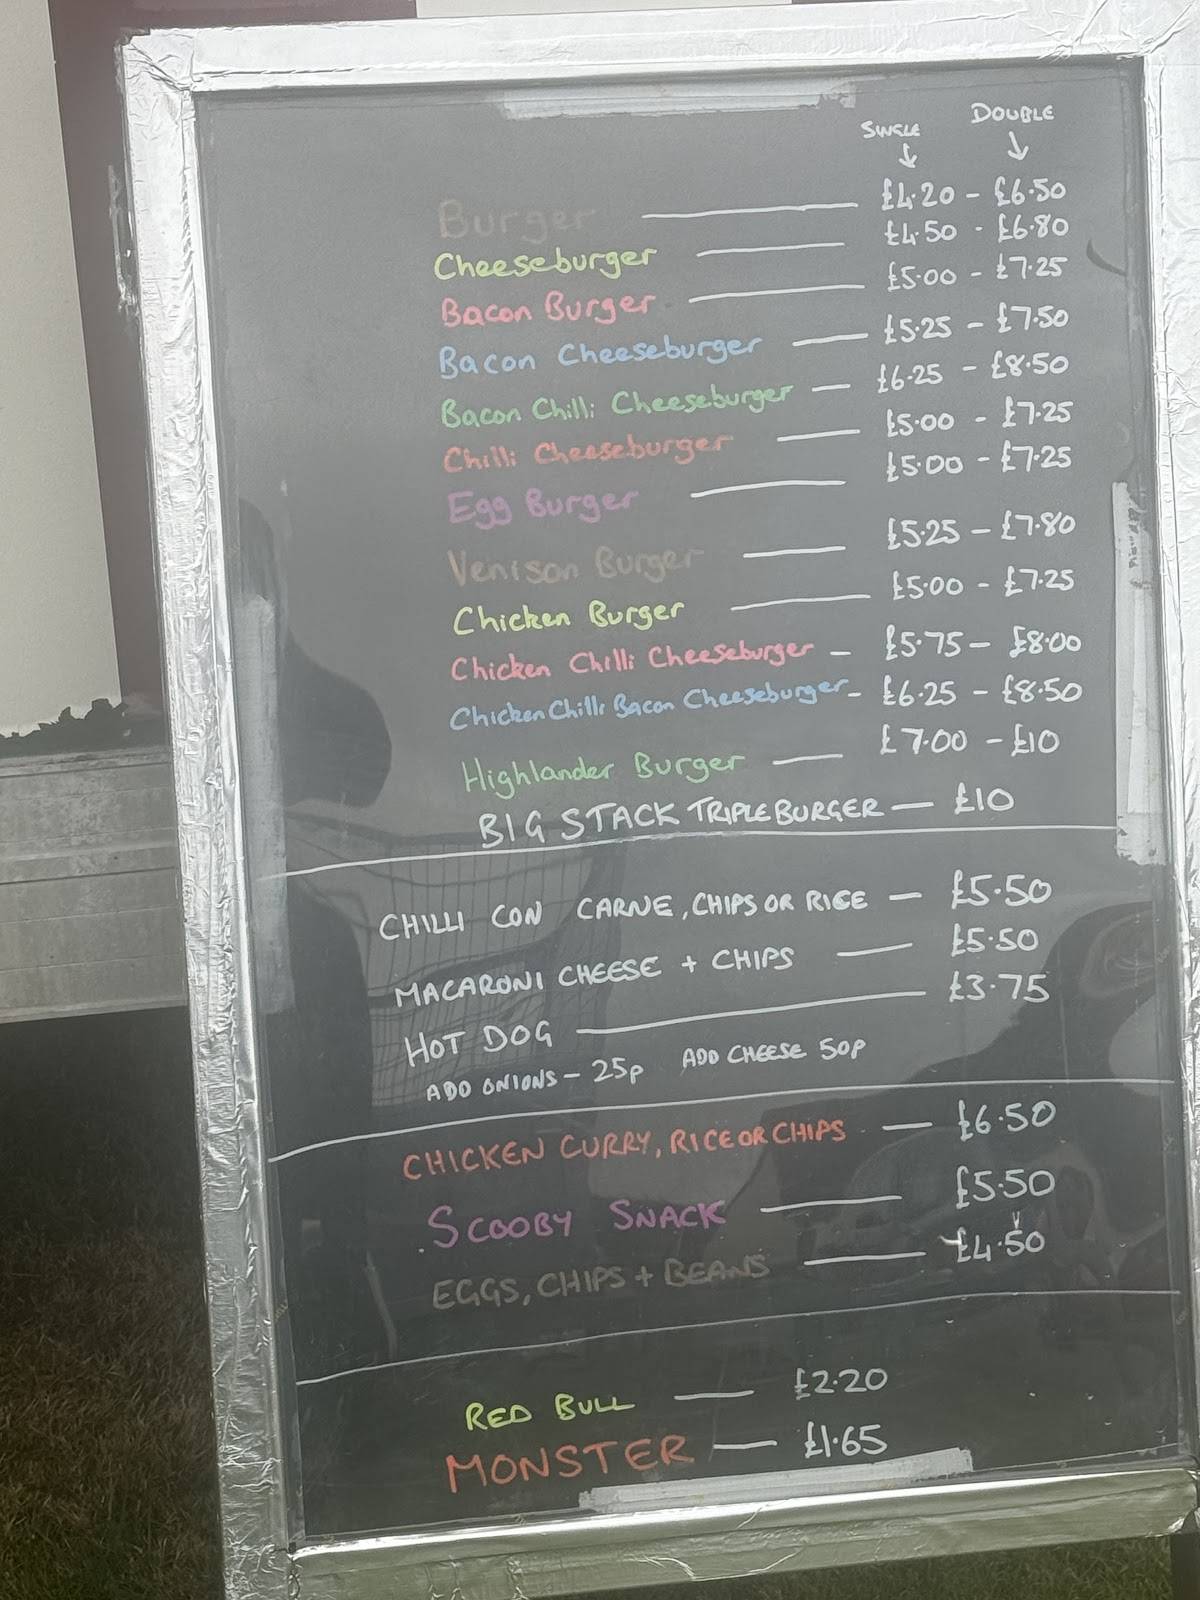 SINGLE DOUBLE
↓ ↓
Burger — £4.20 - £6.50
Cheeseburger — £4.50 - £6.80
Bacon Burger — £5.00 - £7.25
Bacon Cheeseburger — £5.25 - £7.50
Bacon Chilli Cheeseburger — £6.25 - £8.50
Chilli Cheeseburger — £5.00 - £7.25
Egg Burger — £5.00 - £7.25
Venison Burger — £5.25 - £7.80
Chicken Burger — £5.00 - £7.25
Chicken Chilli Cheeseburger — £5.75 - £8.00
Chicken Chilli Bacon Cheeseburger - £6.25 - £8.50
Highlander Burger — £7.00 - £10
BIG STACK TRIPLE BURGER — £10
CHILLI CON CARNE, CHIPS OR RICE — £5.50
MACARONI CHEESE + CHIPS — £5.50
HOT DOG — £3.75
ADD ONIONS - 25p ADD CHEESE 50P
CHICKEN CURRY, RICE OR CHIPS — £6.50
SCOOBY SNACK — £5.50
EGGS, CHIPS + BEANS — £4.50
RED BULL — £2.20
MONSTER — £1.65